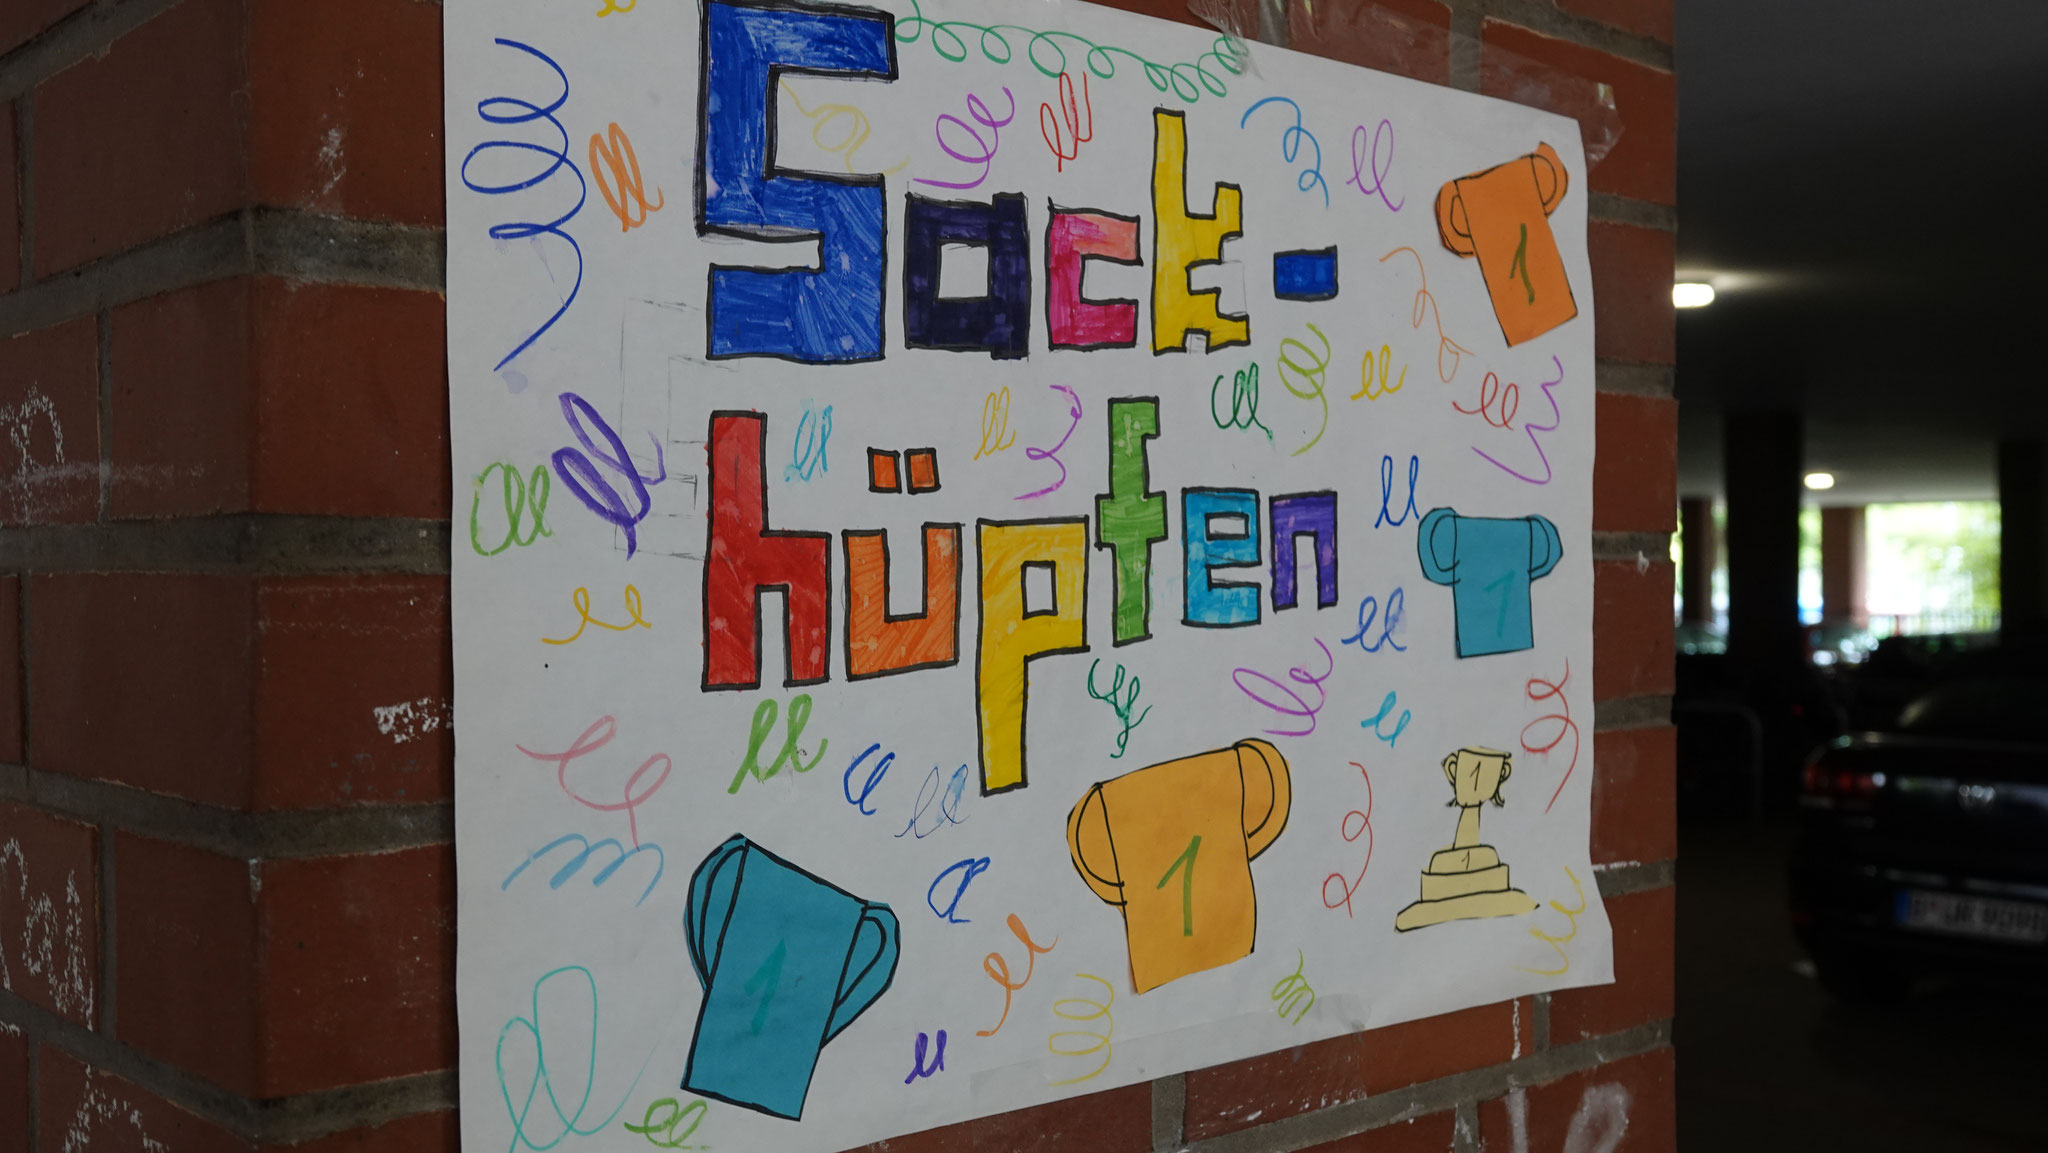 Sack-
1
hüpfen
1
1
1
1
1